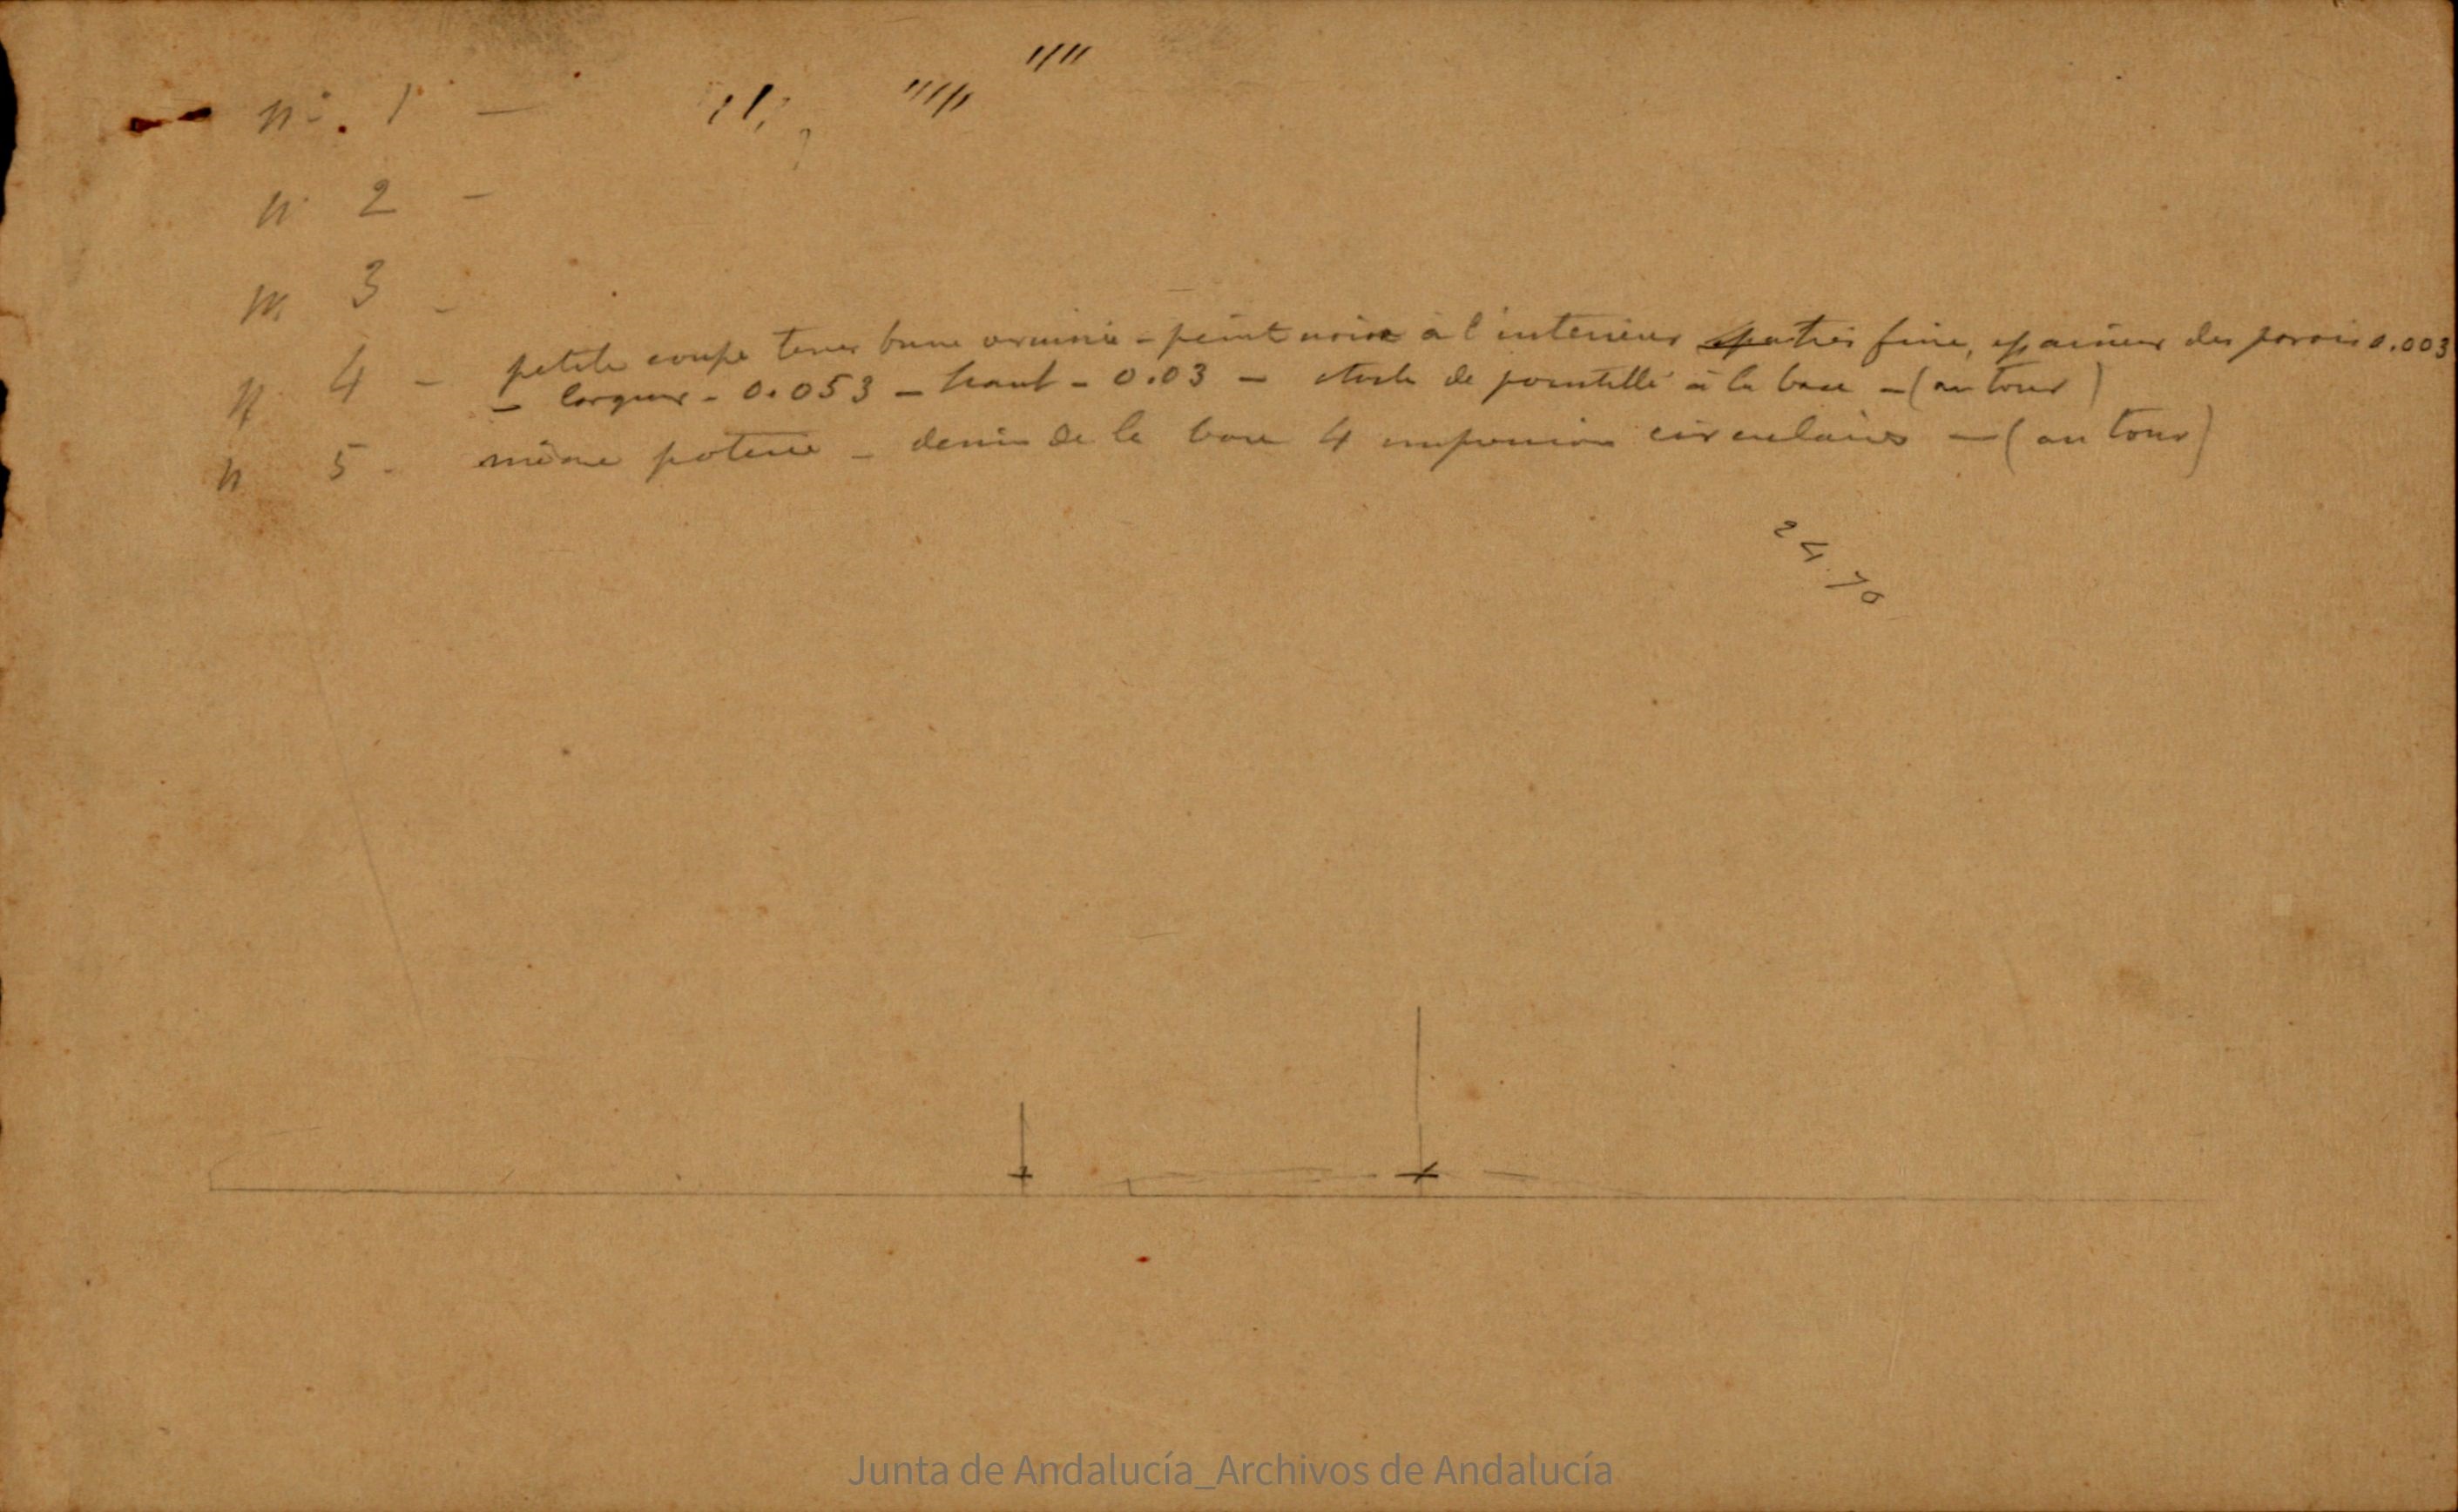 n°. 1 —
n 2 –
n 3 –
n 4 – petite coupe terre brune vernie – peint noir à l'interieur très fine, epaisseur des parois 0.003
– largeur – 0.053 – haut – 0.03 – de pointillé à la base – (au tour)
n 5 – même poterie – dessin de la base 4 impression circulaires – (au tour)
Junta de Andalucía_Archivos de Andalucía